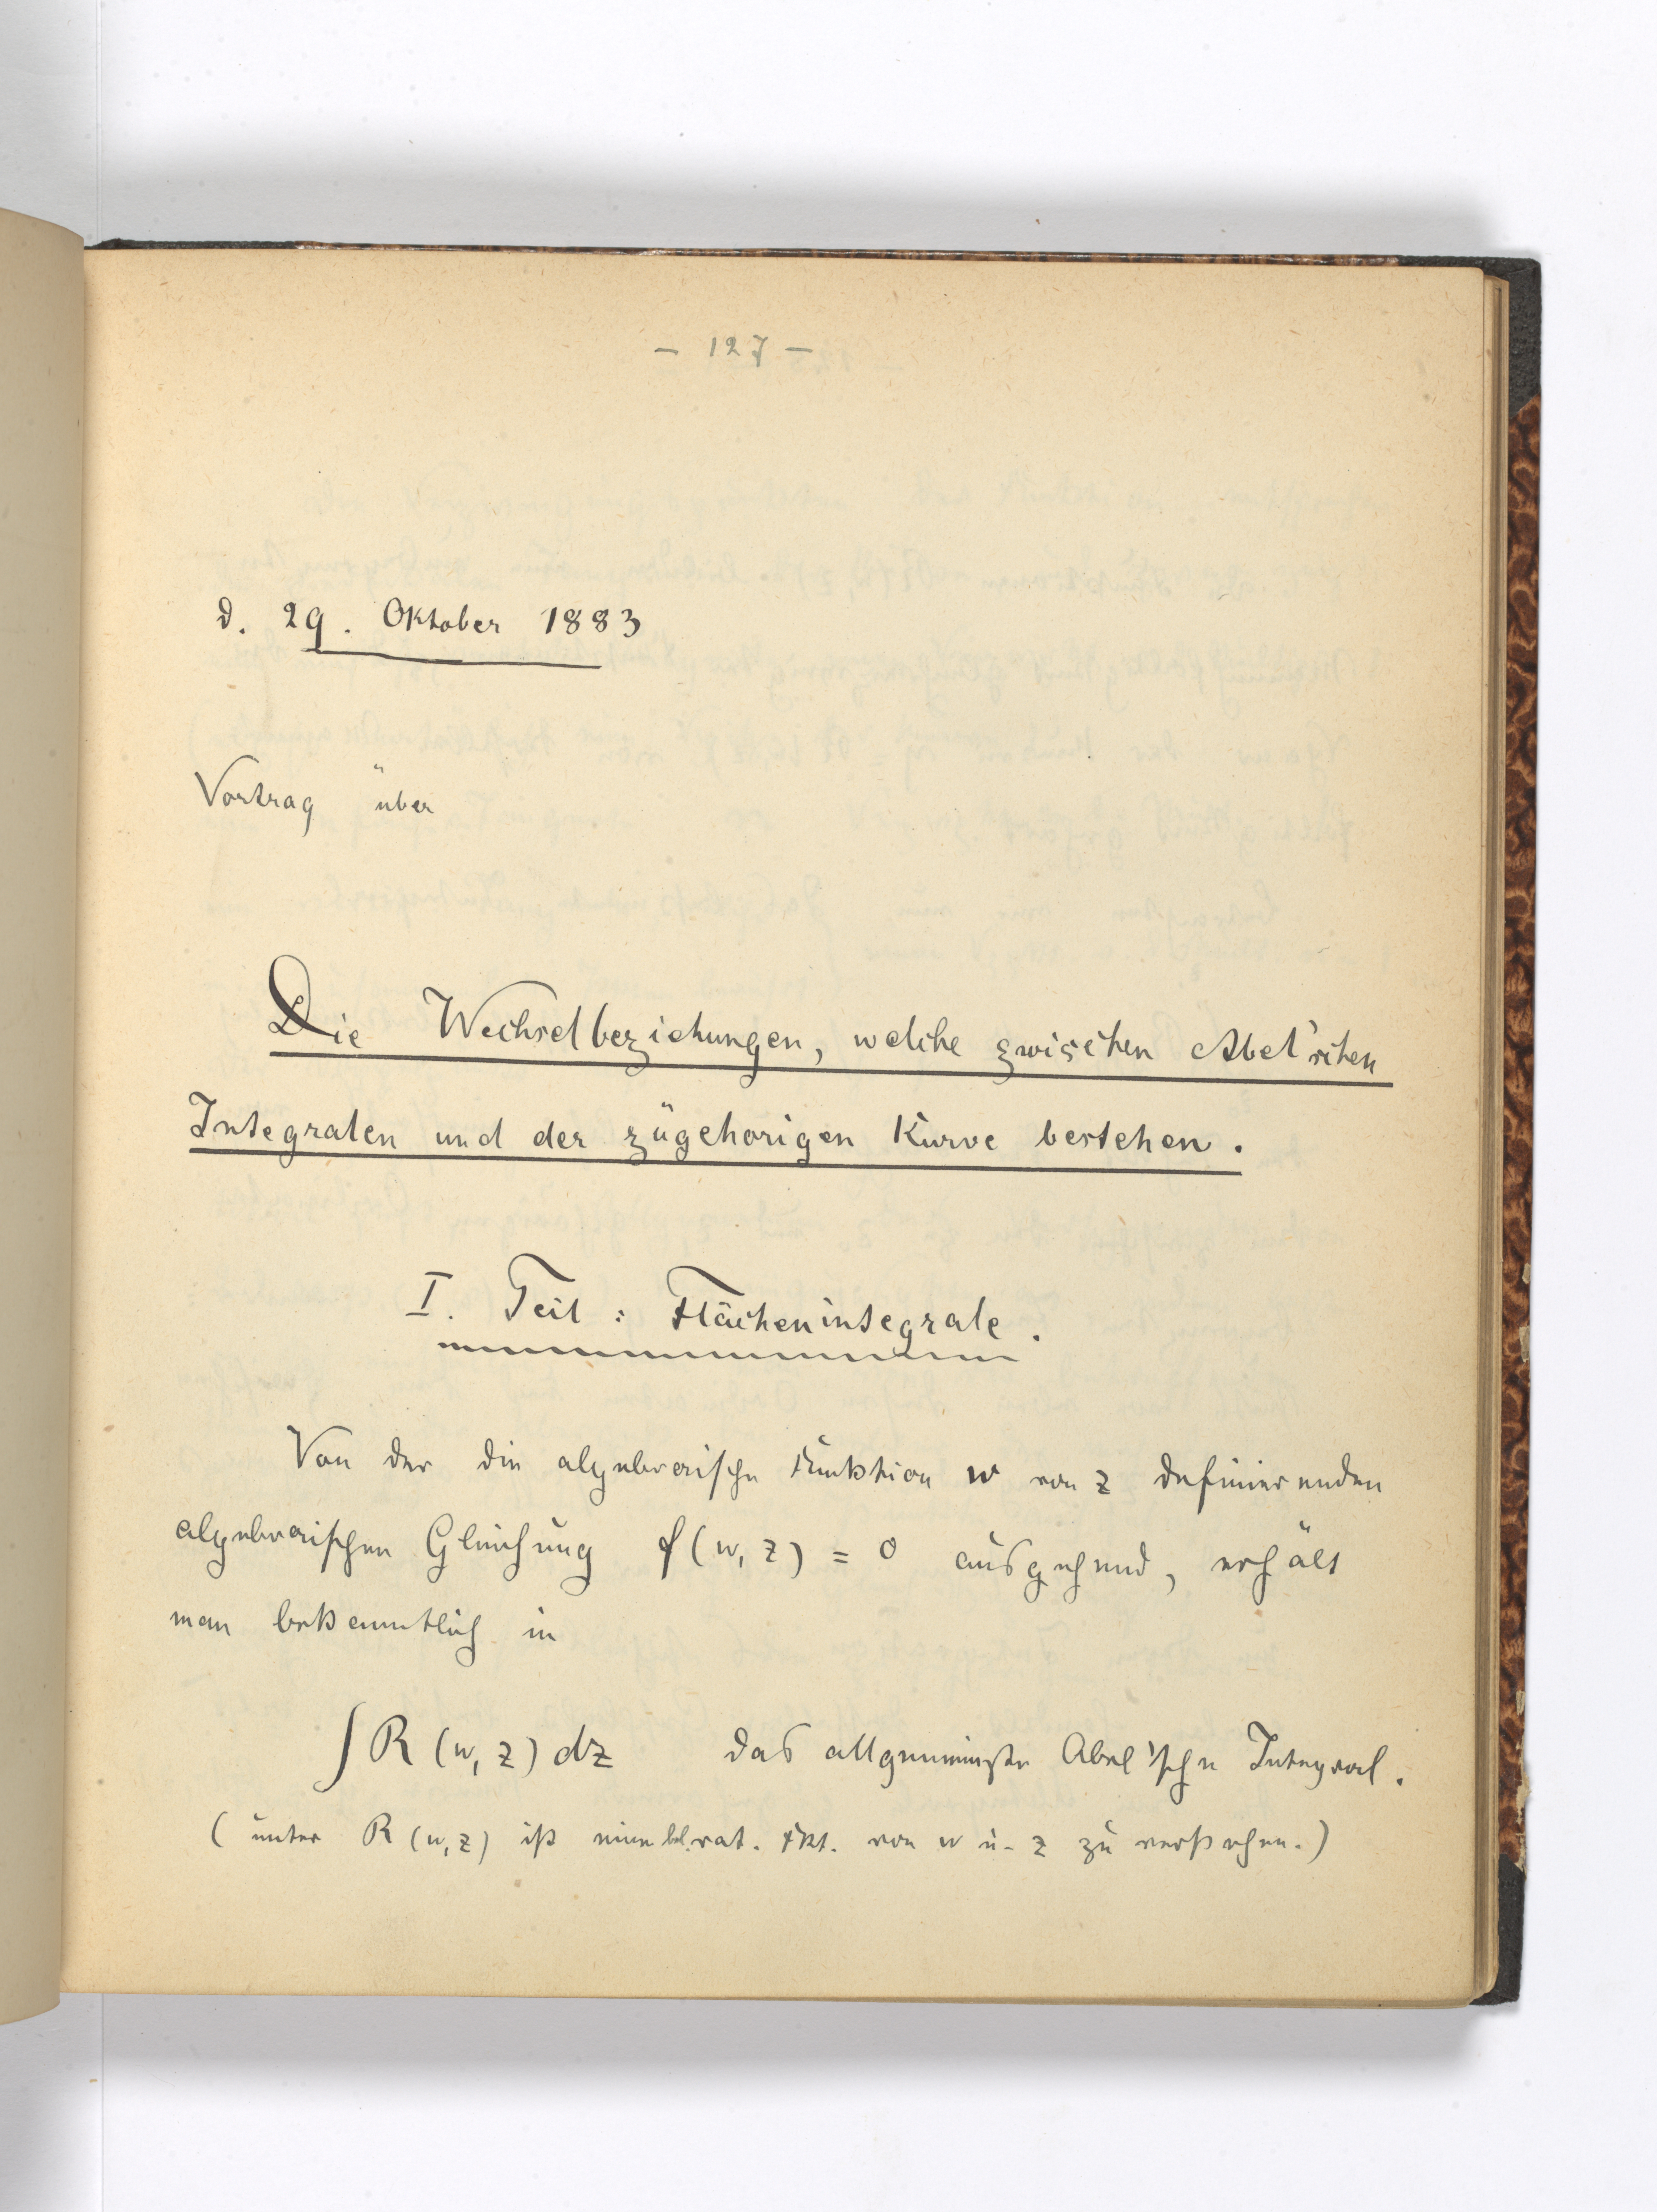 - 127 -
d. 29. Oktober 1883
Vortrag über
Die Wechselbeziehungen, welche zwischen Abel'schen
Integralen und der zugehörigen Kurve bestehen.
I. Teil : Flächenintegrale.
Von der die algebraische Funktion w von z definierenden
algebraischen Gleichung f(w, z) = 0 ausgehend, erhält
man bekanntlich in
∫ R (w, z) dz das allgemeinste Abel'sche Integral.
(unter R (w, z) ist eine bel. rat. Fkt. von w u. z zu verstehen.)